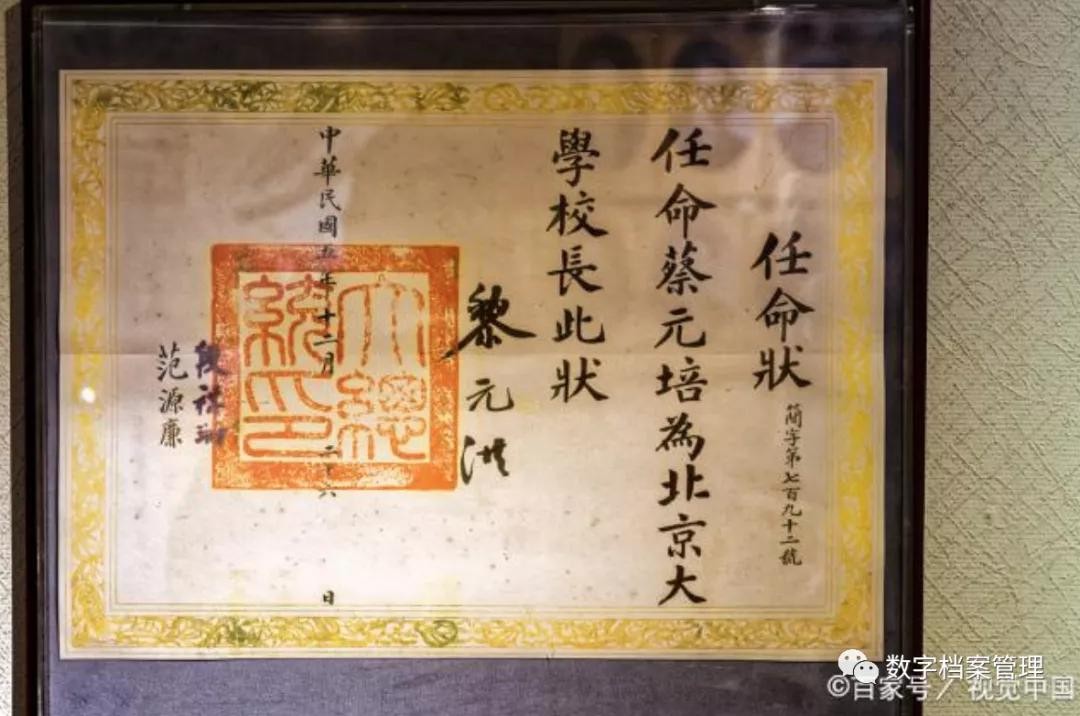 任命狀
簡字第七百九十二號
任命蔡元培為北京大
學校長此狀
黎元洪
大總
統印
中華民國五年十二月二十六日
段祺瑞
范源廉
数字档案管理
©百家号／视觉中国